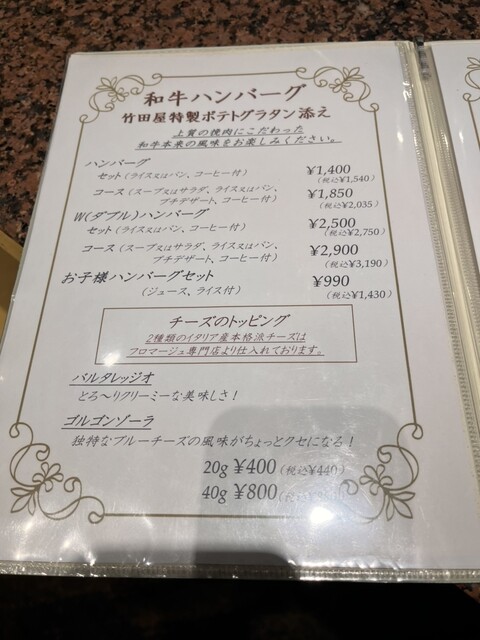 和牛ハンバーグ
竹田屋特製ポテトグラタン添え
上質の挽肉にこだわった
和牛本来の風味をお楽しみください。
ハンバーグ
セット(ライス又はパン、コーヒー付) ¥1,400
(税込¥1,540)
コース(スープ又はサラダ、ライス又はパン、 ¥1,850
プチデザート、コーヒー付) (税込¥2,035)
W(ダブル)ハンバーグ
セット(ライス又はパン、コーヒー付) ¥2,500
(税込¥2,750)
コース(スープ又はサラダ、ライス又はパン、 ¥2,900
プチデザート、コーヒー付) (税込¥3,190)
お子様ハンバーグセット ¥990
(ジュース、ライス付) (税込¥1,430)
チーズのトッピング
2種類のイタリア産本格派チーズは
フロマージュ専門店より仕入れております。
バルタレッジオ
とろ〜りクリーミーな美味しさ!
ゴルゴンゾーラ
独特なブルーチーズの風味がちょっとクセになる!
20g ¥400(税込¥440)
40g ¥800(税込